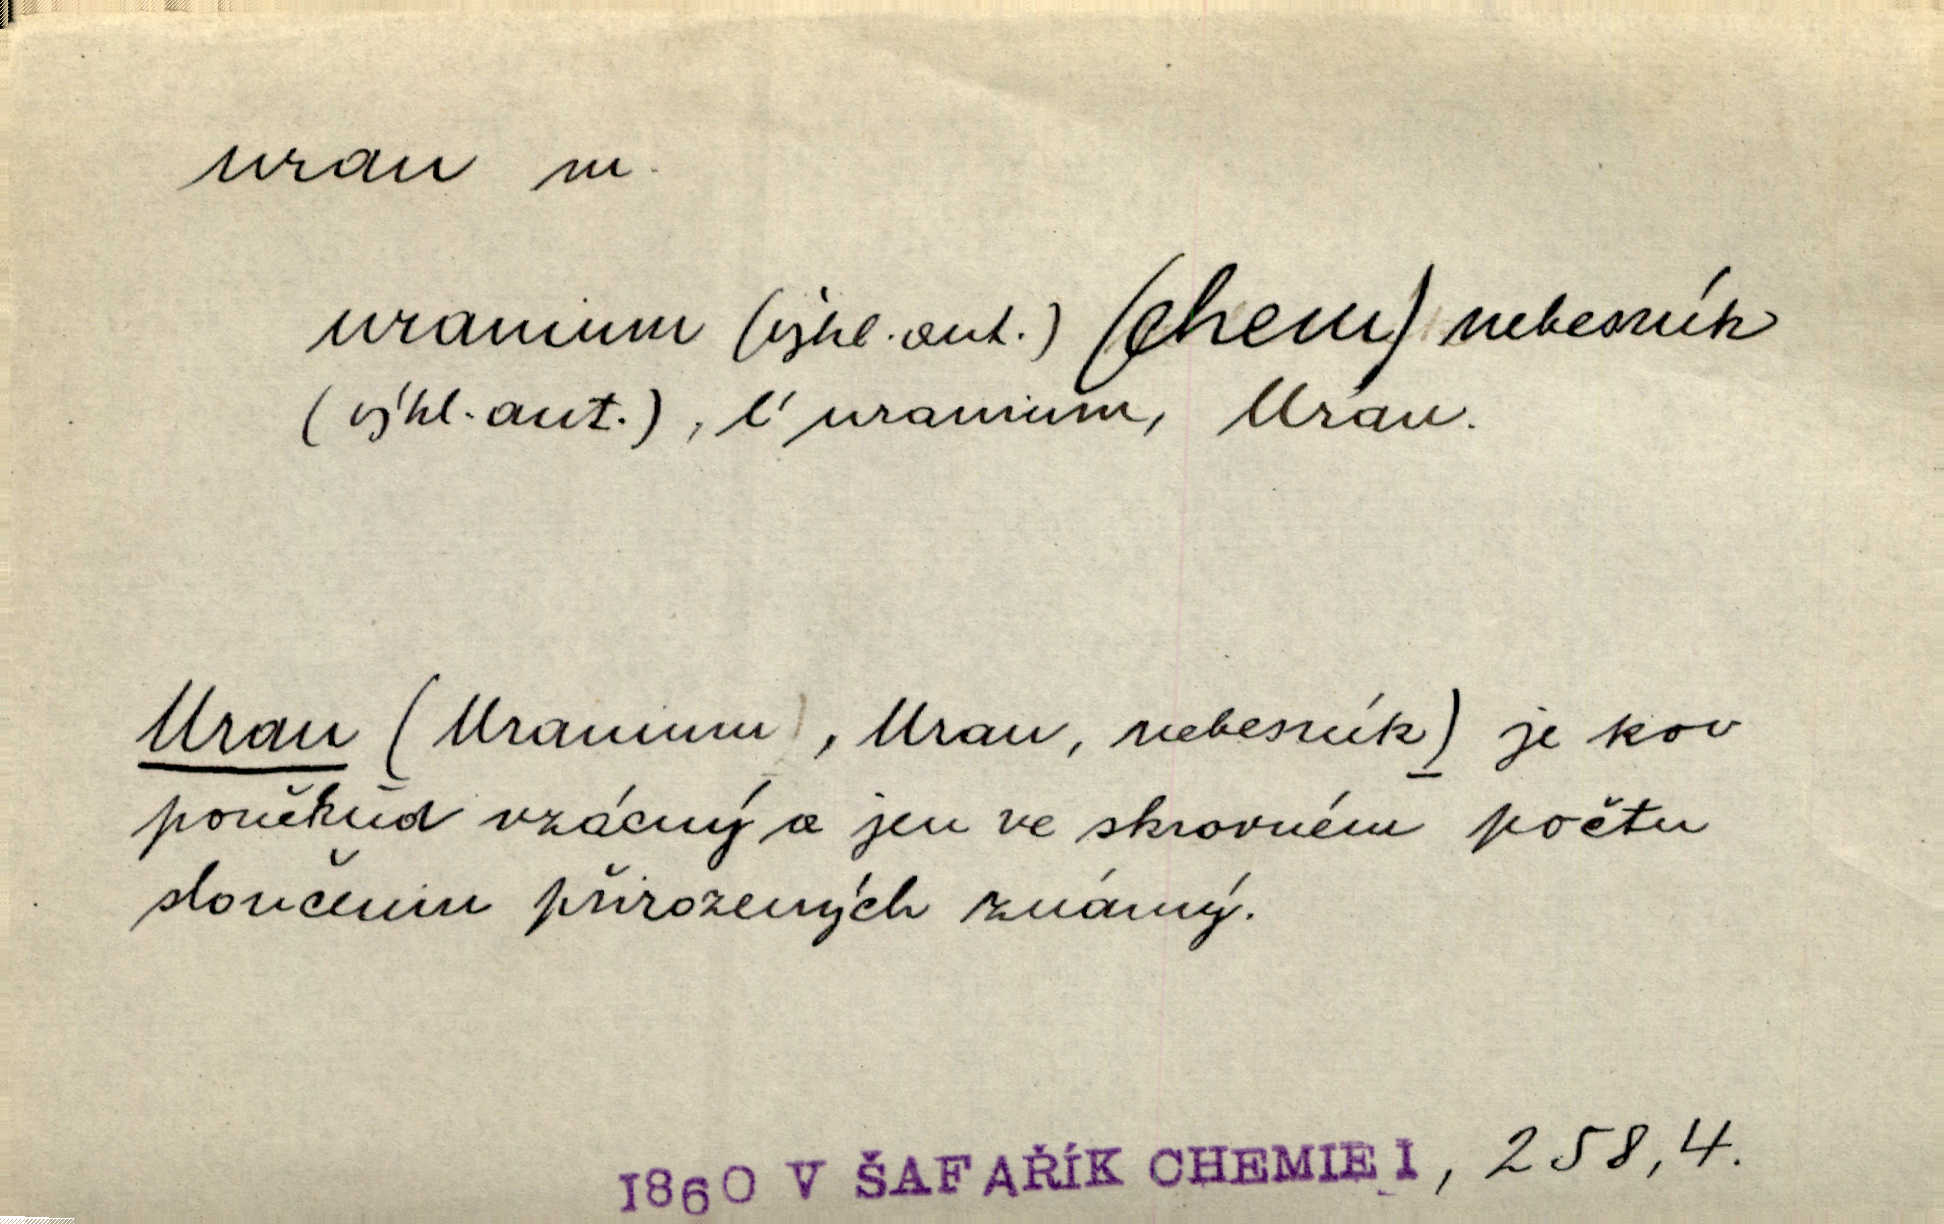 uran m.
uranium (výkl. aut.) (chem) nebesník
(výkl. aut.), l'uranium, Uran.
Uran (Uranium, Uran, nebesník) je kov
poněkud vzácný a jen ve skrovném počtu
sloučenin přirozených známý.
1860 V ŠAFAŘÍK CHEMIE I, 258,4.